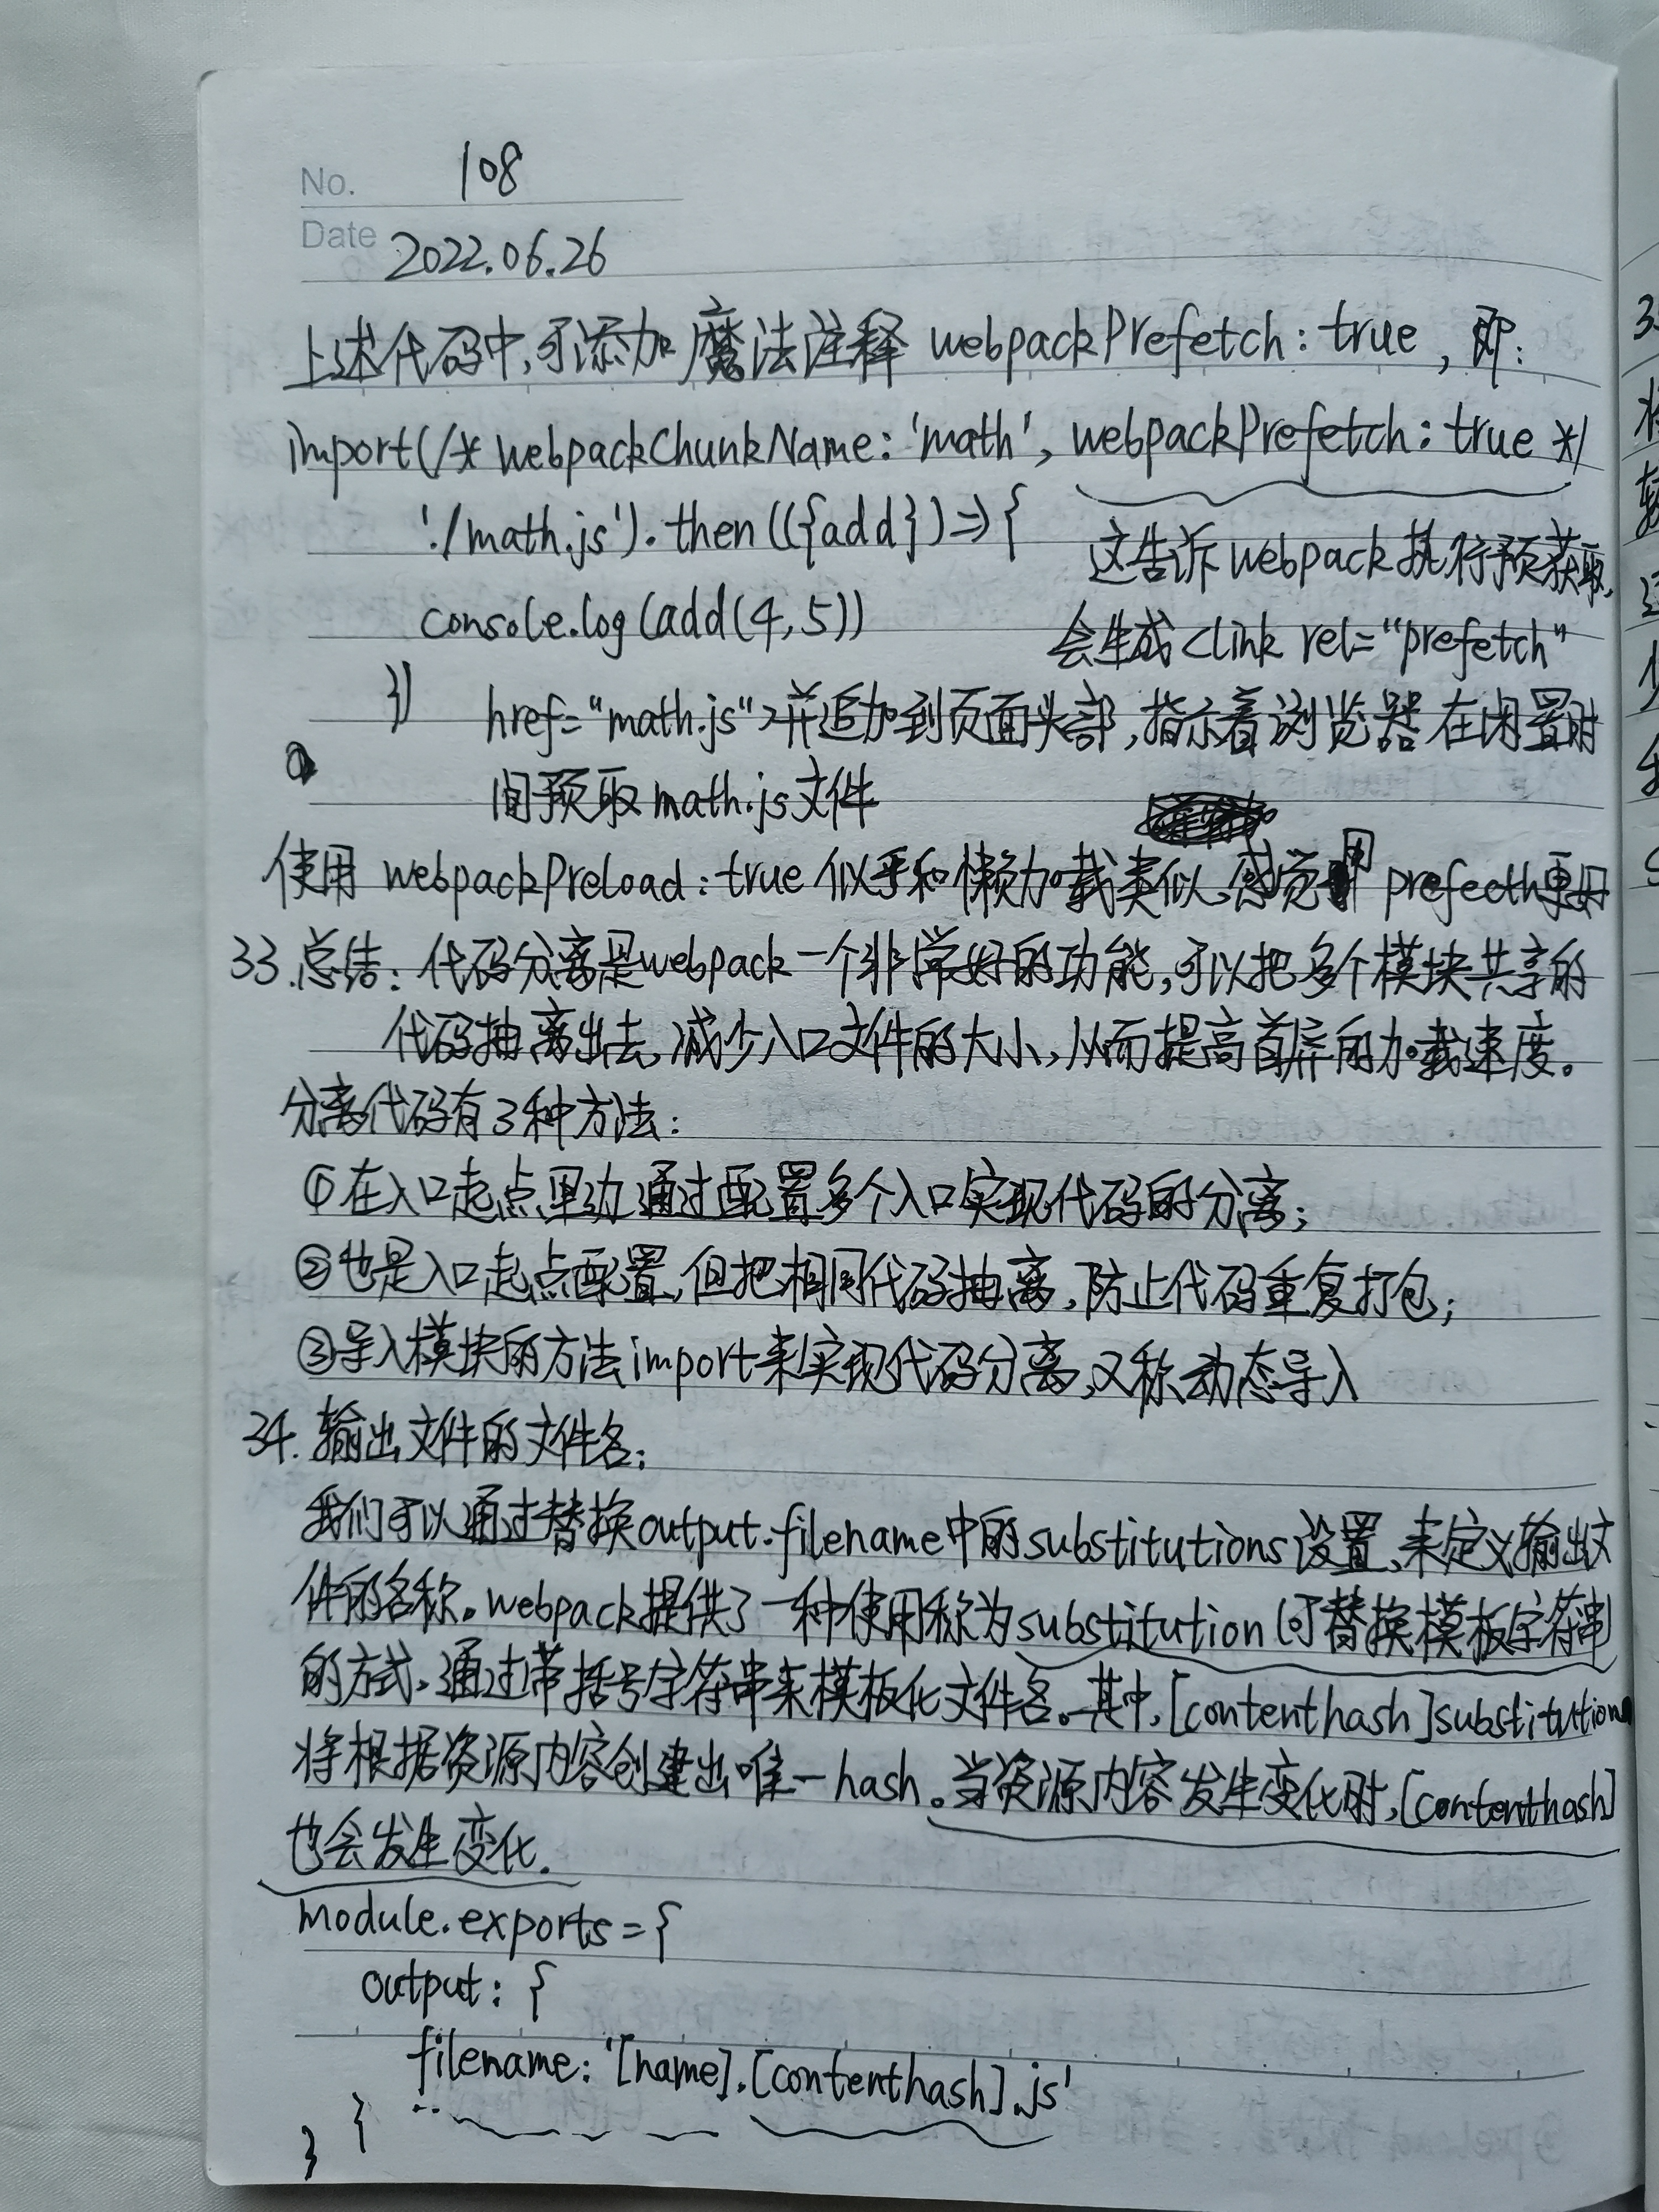 No. 108
Date 2022.06.26
上述代码中,可添加魔法注释 webpackPrefetch:true,即:
import(/* webpackChunkName:'math', webpackPrefetch:true */
'./math.js').then(({add})=>{
这告诉webpack执行预获取,
console.log(add(4,5))
会生成<link rel="prefetch"
})
href="math.js">并追加到页面头部,指示着浏览器在闲置时
间预取math.js文件
使用 webpackPreload:true 似乎和懒加载类似,感觉用 prefecth更好
33.总结:代码分离是webpack一个非常好的功能,可以把多个模块共享的
代码抽离出去,减少入口文件的大小,从而提高首屏的加载速度。
分离代码有3种方法:
①在入口起点里边通过配置多个入口实现代码的分离;
②也是入口起点配置,但把相同代码抽离,防止代码重复打包;
③导入模块的方法import来实现代码分离,又称动态导入
34.输出文件的文件名:
我们可以通过替换output.filename中的substitutions设置,来定义输出文
件的名称。webpack提供了一种使用称为substitution(可替换模板字符串
的方式,通过带括号字符串来模板化文件名。其中,[contenthash]substitution
将根据资源内容创建出唯一hash。当资源内容发生变化时,[contenthash]
也会发生变化.
module.exports={
output:{
filename:'[name].[contenthash].js'
}
}